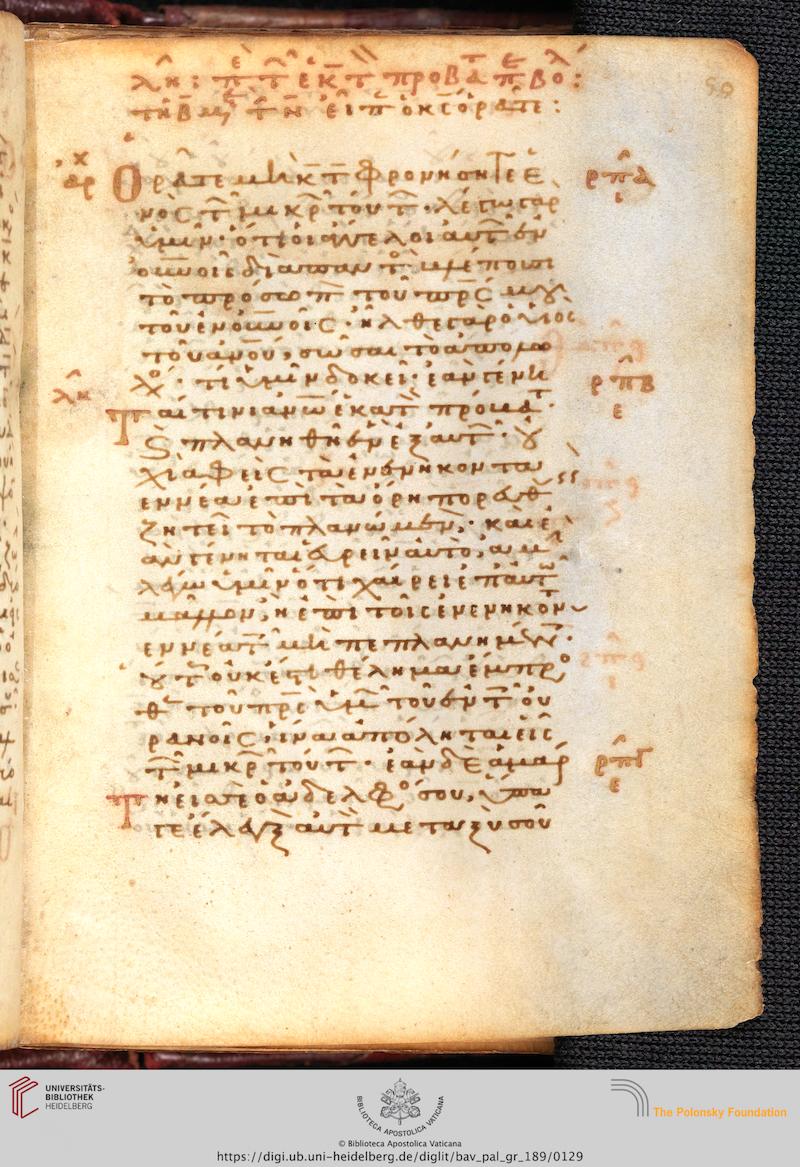 50
λη: π τ ἑκτ προβατ π βο:
τη β μ τ ν εἰπ ὁ κς ὁρατε:
ἀρχ Ὁρᾶτε μὴ κτ φρονήσητε ἑ ρπα ι
νὸς τ μικρ τούτ· λέγω γὰρ
ὑμῖν· ὅτι οἱ ἄγγελοι αὐτ ἐν
οὐνοῖς διαπαντ βλέπουσι
τὸ πρόσωπ τοῦ πρς μου
τοῦ ἐν οὐνοῖς· ἦλθε γὰρ ὁ υἱὸς
τοῦ ἀνου, σῶσαι τὸ ἀπολω
λός· τί ὑμῖν δοκεῖ· ἐὰν γένη ρπβ ε
λη ται τινι ανω ἑκατ πρόβατ·
καὶ πλανηθῆ ἓν ἐξ αὐτ· οὐ
χὶ ἀφεὶς τὰ ἐνενήκοντα
ἐννέα ἐπὶ τὰ ὄρη πορευθ
ζητεῖ τὸ πλανώμεν· καὶ ἐ
ὰν γένηται εὑρεῖν αὐτό, ἀμὴ
λέγω ὑμῖν ὅτι χαίρει ἐπ αὐτῶ
μᾶλλον, ἢ ἐπὶ τοῖς ἐνενήκοντ
ἐννέα τ μὴ πεπλανημεν·
οὕτ οὐκ ἔστι θέλημα ἔμπρο
θ τοῦ πρς ὑμ τοῦ ἐν τ οὐ
ρανοῖς, ἵνα ἀπόληται εἷς
τ μικρ τούτ· ἐὰν δὲ ἁμαρ ρπγ ε
τήσει ὁ ἀδελφό σου, ὕπα
γε ἔλεγξ αὐτ μεταξὺ σοῦ
UNIVERSITÄTS-
BIBLIOTHEK
HEIDELBERG
BIBLIOTECA APOSTOLICA VATICANA
The Polonsky Foundation
© Biblioteca Apostolica Vaticana
https://digi.ub.uni-heidelberg.de/diglit/bav_pal_gr_189/0129